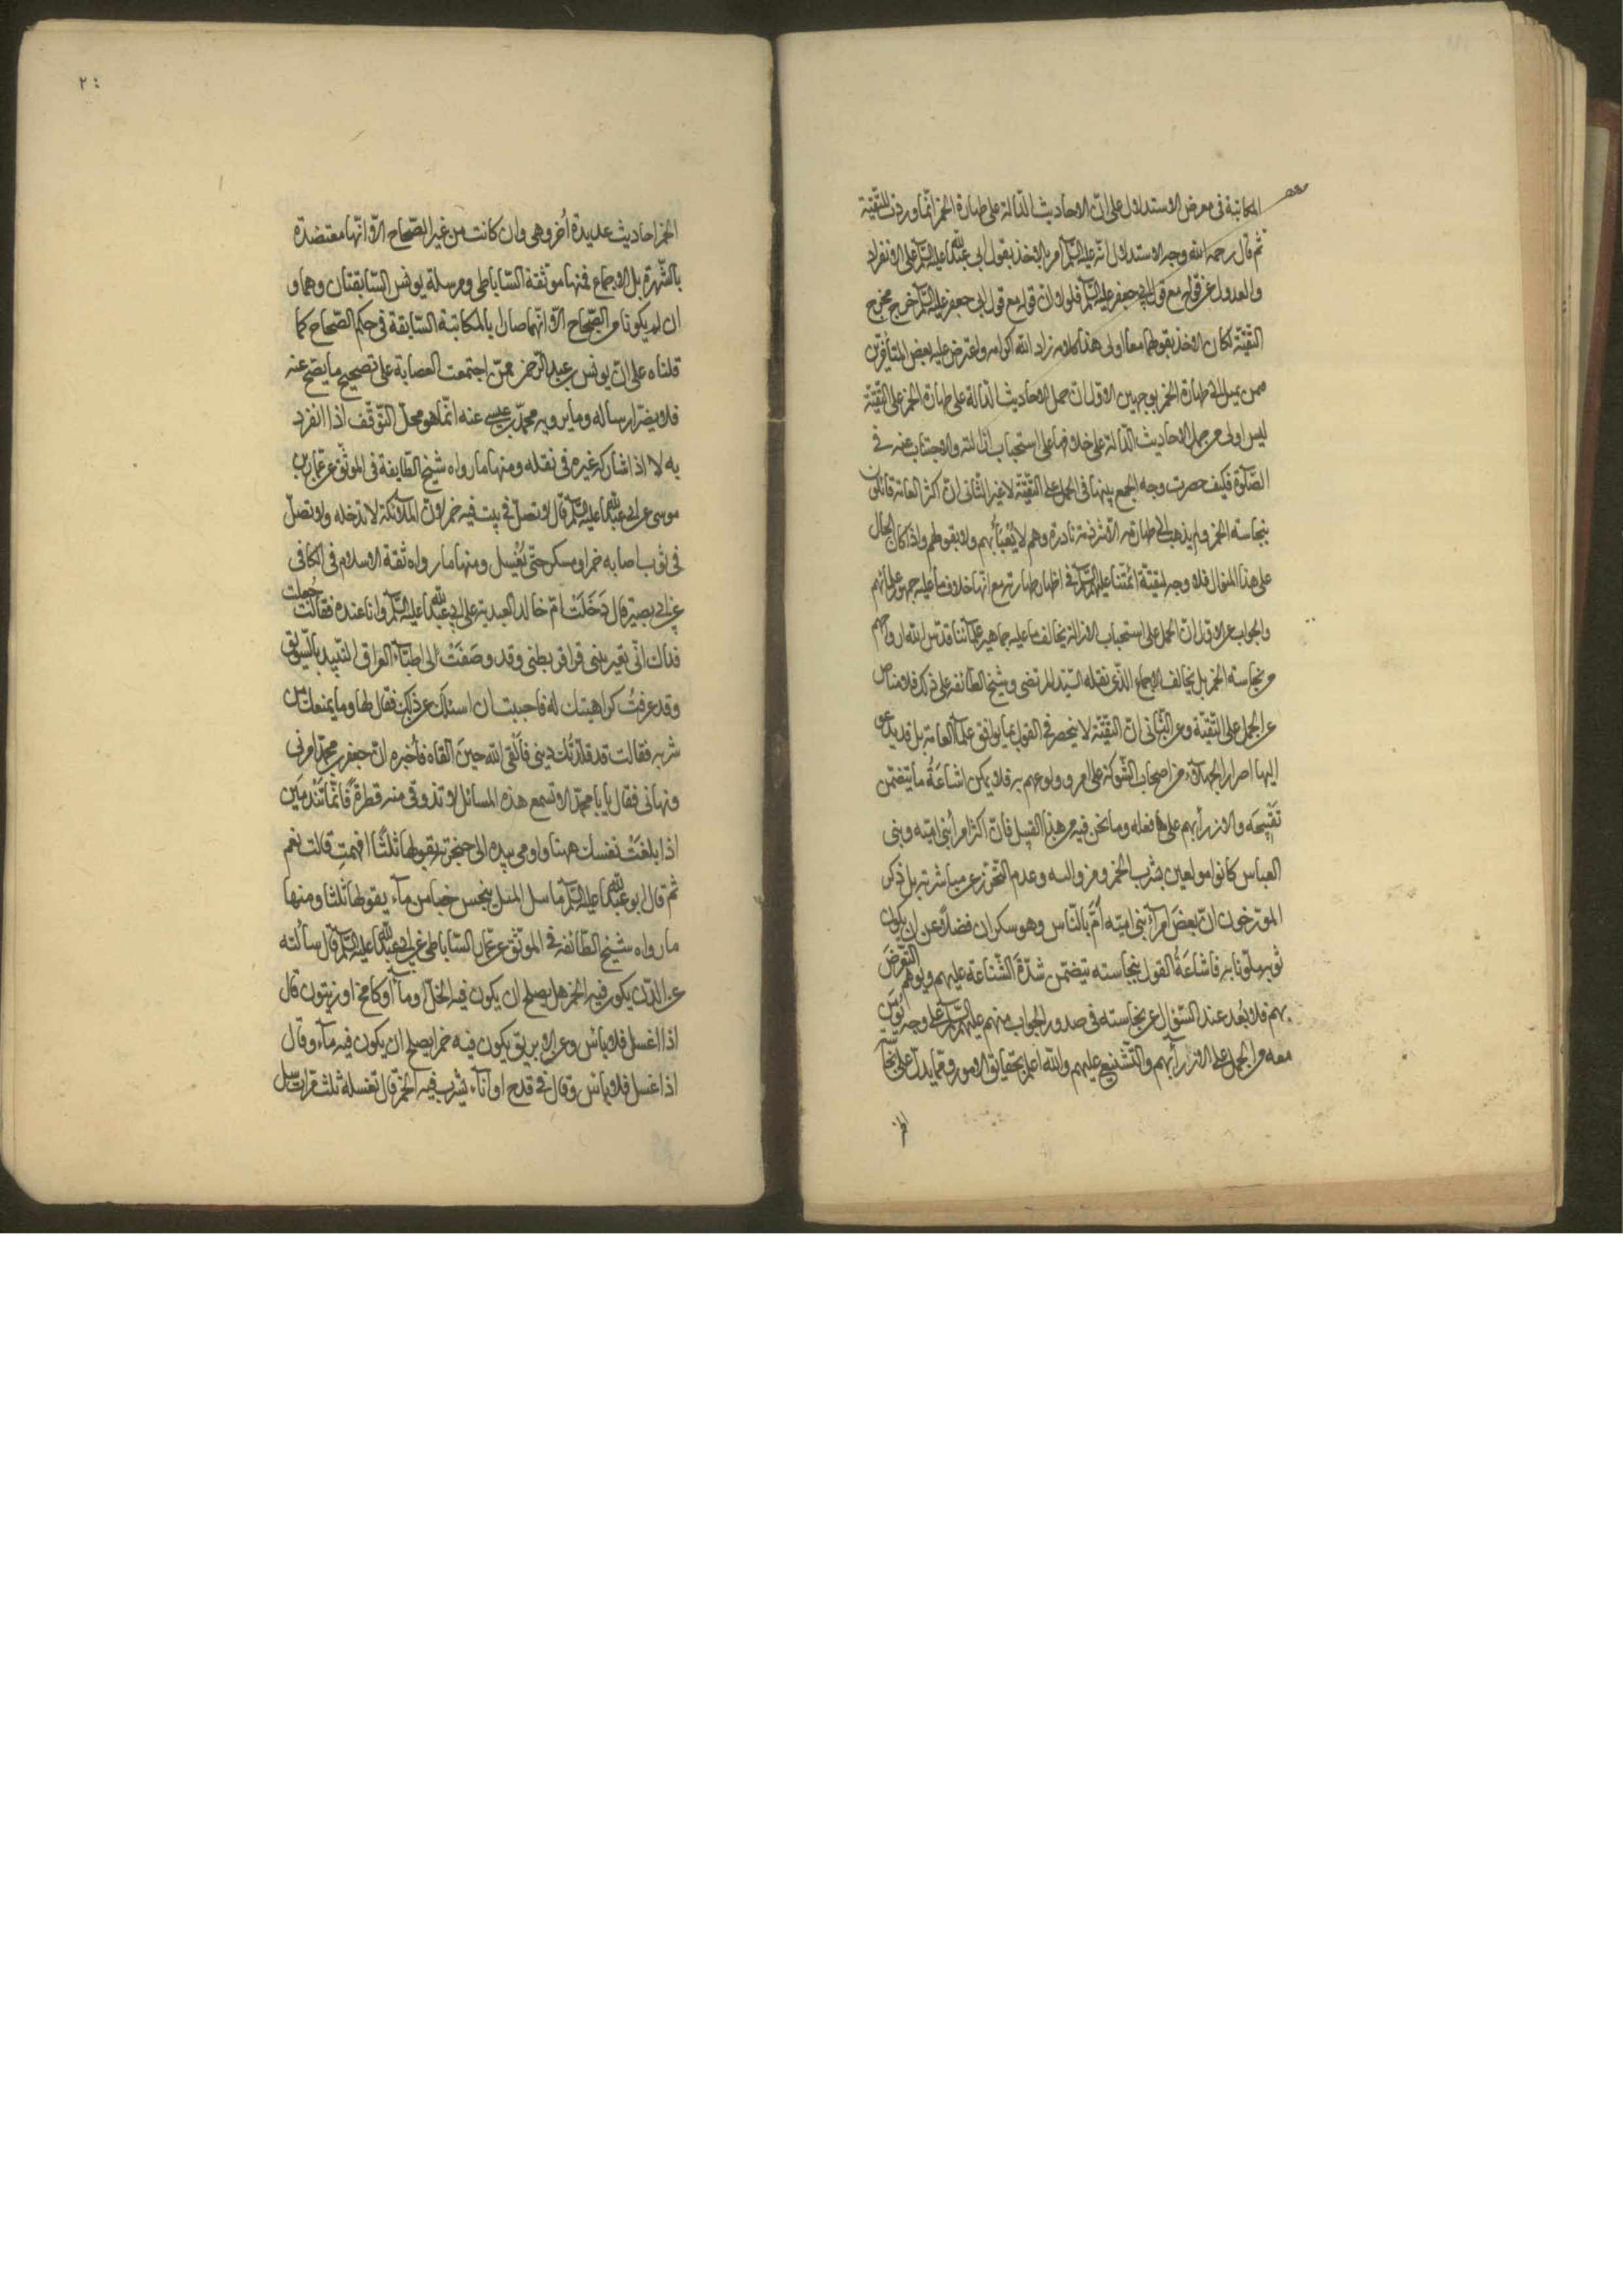 المكاتبة فى معرض الاستدلال على انّ الاحاديث الدّالة على طهارة الخمر انّما وردت للتّقيّة
ثم قال رحمه الله وجه الاستدلال انّه عليه السّلم امر بالاخذ بقول ابى عبد الله عليه السّلم على الانفراد
والعدول عن قوله مع قول ابى جعفر عليه السّلم فلولا ان قوله مع قول ابى جعفر عليه السّلم خرج مخرج
التقيّة لكان الاخذ بقولهما معا اولى هذا كلامه زاد الله اكرامه واعترض عليه بعض المتأخّرين
ممن يميل الى طهارة الخمر بوجهين الاول ان حمل الاحاديث الدّالة على طهارة الخمر على التقيّة
ليس اولى من حمل الاحاديث الدّالة على خلافها على استحباب ازالته والاجتناب عنه فى
الصّلوة فكيف حصرت وجه الجمع بينها فى الحمل على التقيّة لا غير الثانى انّ اكثر العامة قائلون
بنجاسته الخمر ولم يذهب الى طهارته الّا شرذمة نادرة وهم لا يُعْبَأُ بهم ولا بقولهم واذا كان الحال
على هذا المنوال فلا وجه لتقيّة ائمّتنا عليهم السّلم فى اظهار طهارته مع انّها خلاف ما عليه جمهور علمائهم
والجواب عن الاول انّ الحمل على استحباب الازالة يخالف ما عليه جماهير علمائنا قدّس الله ارواحهم
من نجاسته الخمر بل يخالف الاجماع الذّى نقله السّيّد المرتضى وشيخ الطائفة على ذلك فلا مناص
عن الحمل على التّقيّة وعن الثّانى انّ التقيّة لا ينحصر فى القول بما يوافق علمآء العامة بل قد يدعو
اليها اصرار الجهلاء من اصحاب الشّوكة على امر وولوعهم به فلا يمكن اشاعَةُ ما يتضمن
تقبيحَه والازرآء بهم على فعله وما نحن فيه من هذا القبيل فانّ اكثر امرآء بنى اميّه وبنى
العباس كانوا مولعين بشرب الخمر ومزوالته وعدم التّحرّز عن مباشرته بل ذكر
المورّخون انّ بعضَ امرآء بنى اميّه أمّ بالنّاس وهو سكران فضلًا عن ان يكون
ثوبه ملوّثا به فاشاعَةُ القول بنجاسته يتضمن شدّةَ الشّناعة عليهم ويوهم التّعرّضَ
بهم فلا بُعد عند السّؤال عن نجاسته فى صدور الجواب منهم عليهم السّلم على وجه يؤمَن
معه من الحمل على الازرآء بهم والتّشنيع عليهم والله اعلم بحقايق الامور وممّا يدلّ على نجاسته
الخمر احاديث عديدة أُخر وهى وان كانت من غير الصّحاح الّا انّها معتضدة
بالشّهرة بل الاجماع فمنها موثقة السّاباطى ومرسلة يونس السّابقتان وهما و
ان لم يكونا من الصّحاح الّا انّهما صارا بالمكاتبة السّابقة فى حكم الصّحاح كما
قلناه على انّ يونس بن عبد الرّحمن ممّن اجتمعت العصابة على تصحيح ما يصحّ عنه
فلا يضرّ ارساله وما يرويه محمّد بن عيسى عنه انّما هو محلّ التّوقّف اذا انفرد
به لا اذا شاركه غيره فى نقله ومنها ما رواه شيخ الطّايفة فى الموثّق عن عمّار بن
موسى عن ابى عبد الله عليه السّلم قال لا تصلّ فى بيت فيه خمر لانّ الملائكة لا تدخله ولا تصلّ
فى ثوب اصابه خمر او مسكر حتّى يُغْسِل ومنها ما رواه ثقة الاسلام فى الكافى
عن ابى بصير قال دَخَلَتْ امّ خالد العبدية على ابى عبد الله عليه السّلم وانا عنده فقالت جُعلت
فداك انّى يعترينى قراقر بطنى وقد وصَفَتْ لى اطبّآءُ العراق النّبيذ بالسّويق
وقد عرفتُ كراهيتك له فاحببت ان اسئلك عن ذلك فقال لها وما يمنعك من
شربه فقالت قد قلّدتُك دينى فالقى الله حينَ القاه فأخبره انّ جعفر بن محمّد امرنى
ونهانى فقال يا با محمّد الا تسمع هذه المسائل لا تذوقى منه قطرةً فانّما تَنْدمَين
اذا بلغَتْ نفسك ههنا واومى بيده الى حنجرته يقولها ثلثًا افهمتِ قالت نعم
ثم قال ابو عبد الله عليه السّلم ما يبل الميل ينجس حبا من مآء يقولها ثلثا ومنها
ما رواه شيخ الطّائفة فى الموثّق عن عمّار السّاباطى عن ابى عبد الله عليه السّلم قال سألته
عن الدّن يكون فيه الخمر هل يصلح ان يكون فيه الخلّ او مآء او كامخ او زيتون قال
اذا اغسل فلا بأس وعن الابريق يكون فيه خمر ايصلح ان يكون فيه مآء وقال
اذا غسل فلا بأس وقال فى قدح او انآء يشرب فيه الخمر قال تغسله ثلث مرات سئل